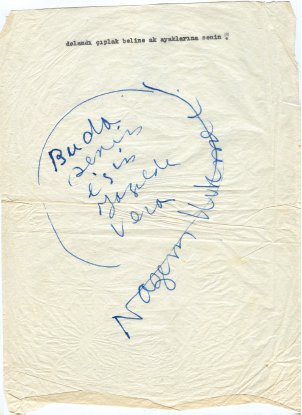 dolandı çıplak beline ak ayaklarına senin !
Buda
senin
için
yazıldı
Vera
Nazım Hikmet